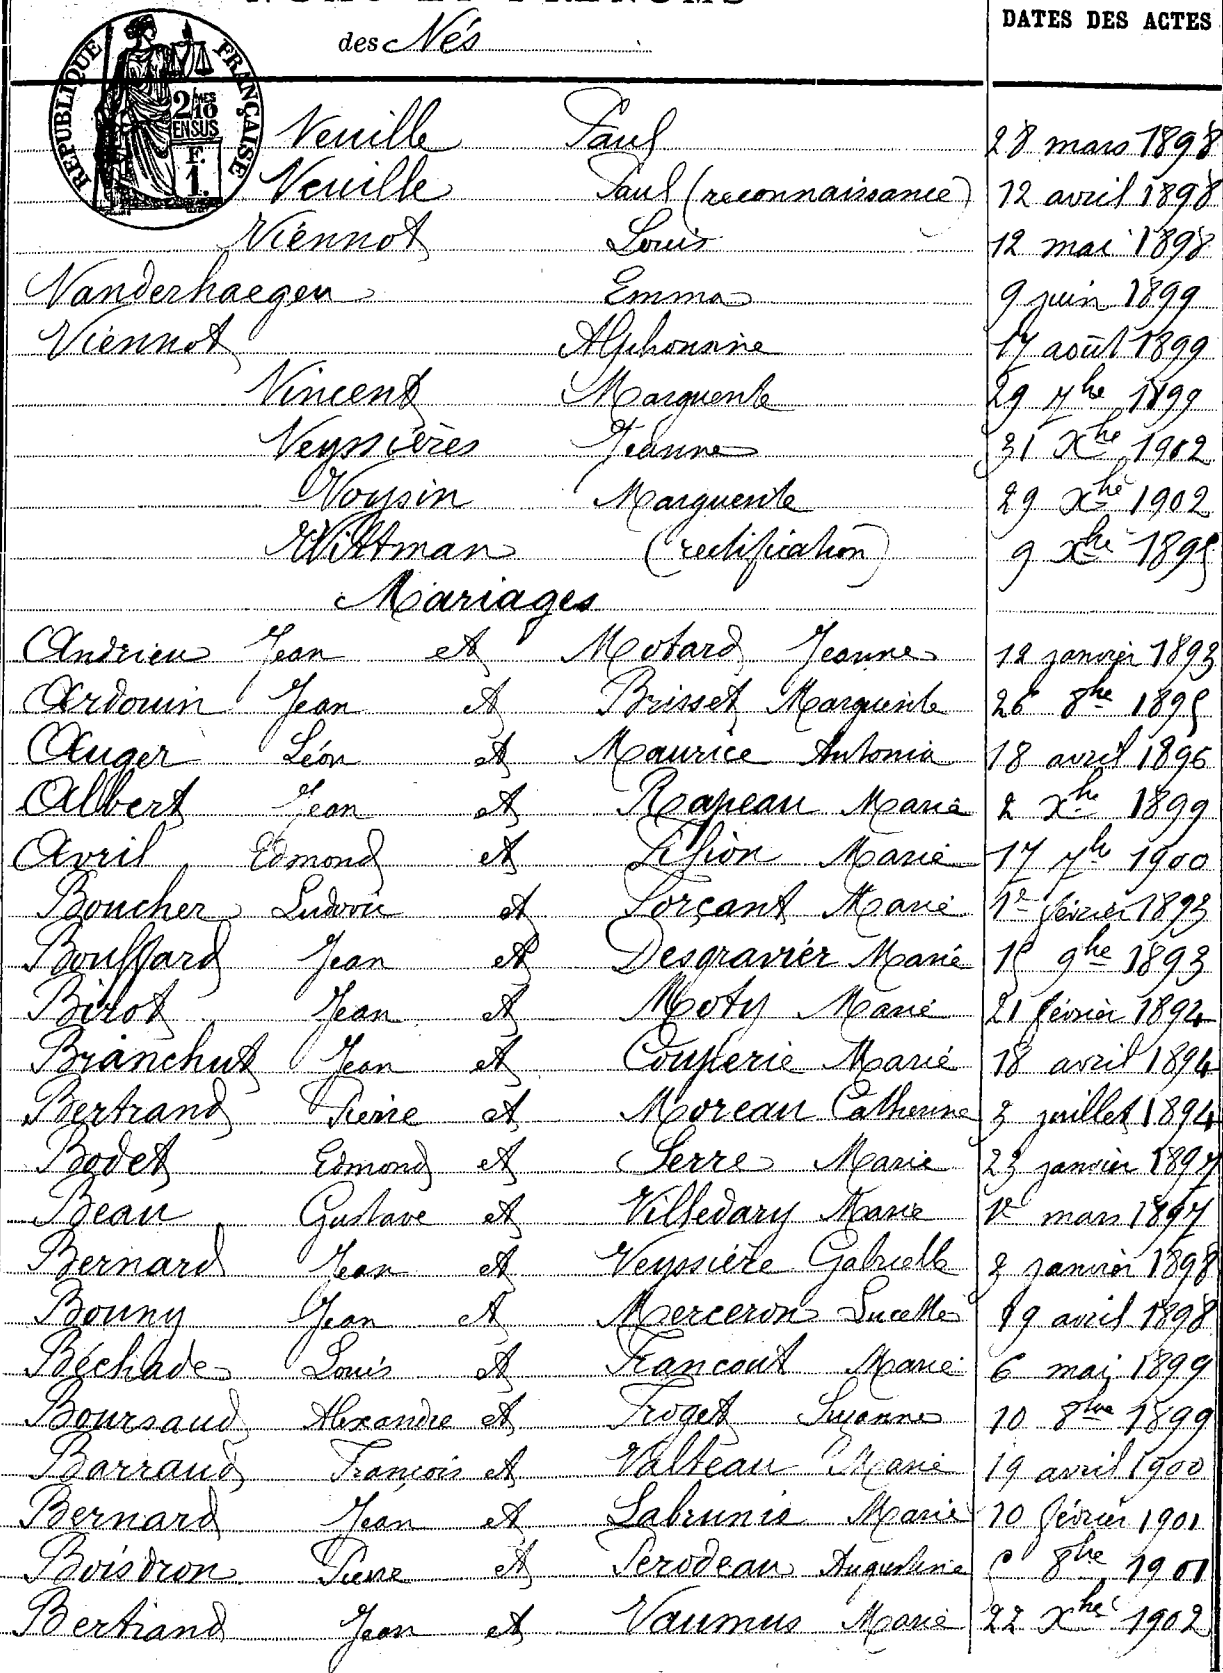 NOMS ET PRÉNOMS
des Nés
DATES DES ACTES
RÉPUBLIQUE FRANÇAISE
2/10 MES
EN SUS
F.
1.
Veuille Paul 28 mars 1898
Veuille Paul (reconnaissance) 12 avril 1898
Viennot Louis 12 mai 1898
Vanderhaegen Emma 9 juin 1899
Viennot Alphonsine 17 août 1899
Vincent Marguerite 29 7bre 1899
Veyssières Jeanne 31 Xbre 1902
Voysin Marguerite 29 Xbre 1902
Wittman (rectification) 9 Xbre 1895
Mariages
Andrieu Jean et Motard Jeanne 12 janvier 1893
Ardouin Jean et Brisset Marguerite 26 8bre 1895
Auger Léon et Maurice Antonia 18 avril 1896
Albert Jean et Rapeau Marie 2 Xbre 1899
Avril Edmond et Marie 17 7bre 1900
Boucher Ludovic et Sorçant Marie 1er février 1893
Bouffard Jean et Desgravier Marie 15 9bre 1893
Birot Jean et Moty Marie 21 février 1894
Branchut Jean et Couperie Marie 18 avril 1894
Bertrand Pierre et Moreau Catherine 3 juillet 1894
Bodet Edmond et Serre Marie 23 janvier 1897
Beau Gustave et Villedary Marie 1er mars 1897
Bernard Jean et Veyssière Gabrielle 3 janvier 1898
Bouny Jean et Merceron Lucette 19 avril 1898
Béchade Louis et Francout Marie 6 mai 1899
Boursaud Alexandre et Froget Suzanne 10 8bre 1899
Barraud François et Valteau Marie 19 avril 1900
Bernard Jean et Labrunie Marie 10 février 1901
Boisdron Pierre et Perodeau Augustine 8bre 1901
Bertrand Jean et Vaumus Marie 22 Xbre 1902